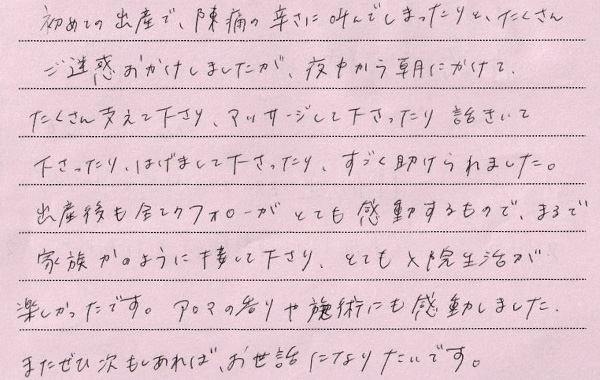 初めての出産で、陣痛の辛さに叫んでしまったりと、たくさん
ご迷惑おかけしましたが、夜中から朝にかけて、
たくさん支えて下さり、マッサージして下さったり話きいて
下さったり、はげまして下さったり、すごく助けられました。
出産後も全てフォローがとても感動するもので、まるで
家族かのように接して下さり、とても入院生活が
楽しかったです。アロマの香りや施術にも感動しました。
またぜひ次もしあれば、お世話になりたいです。